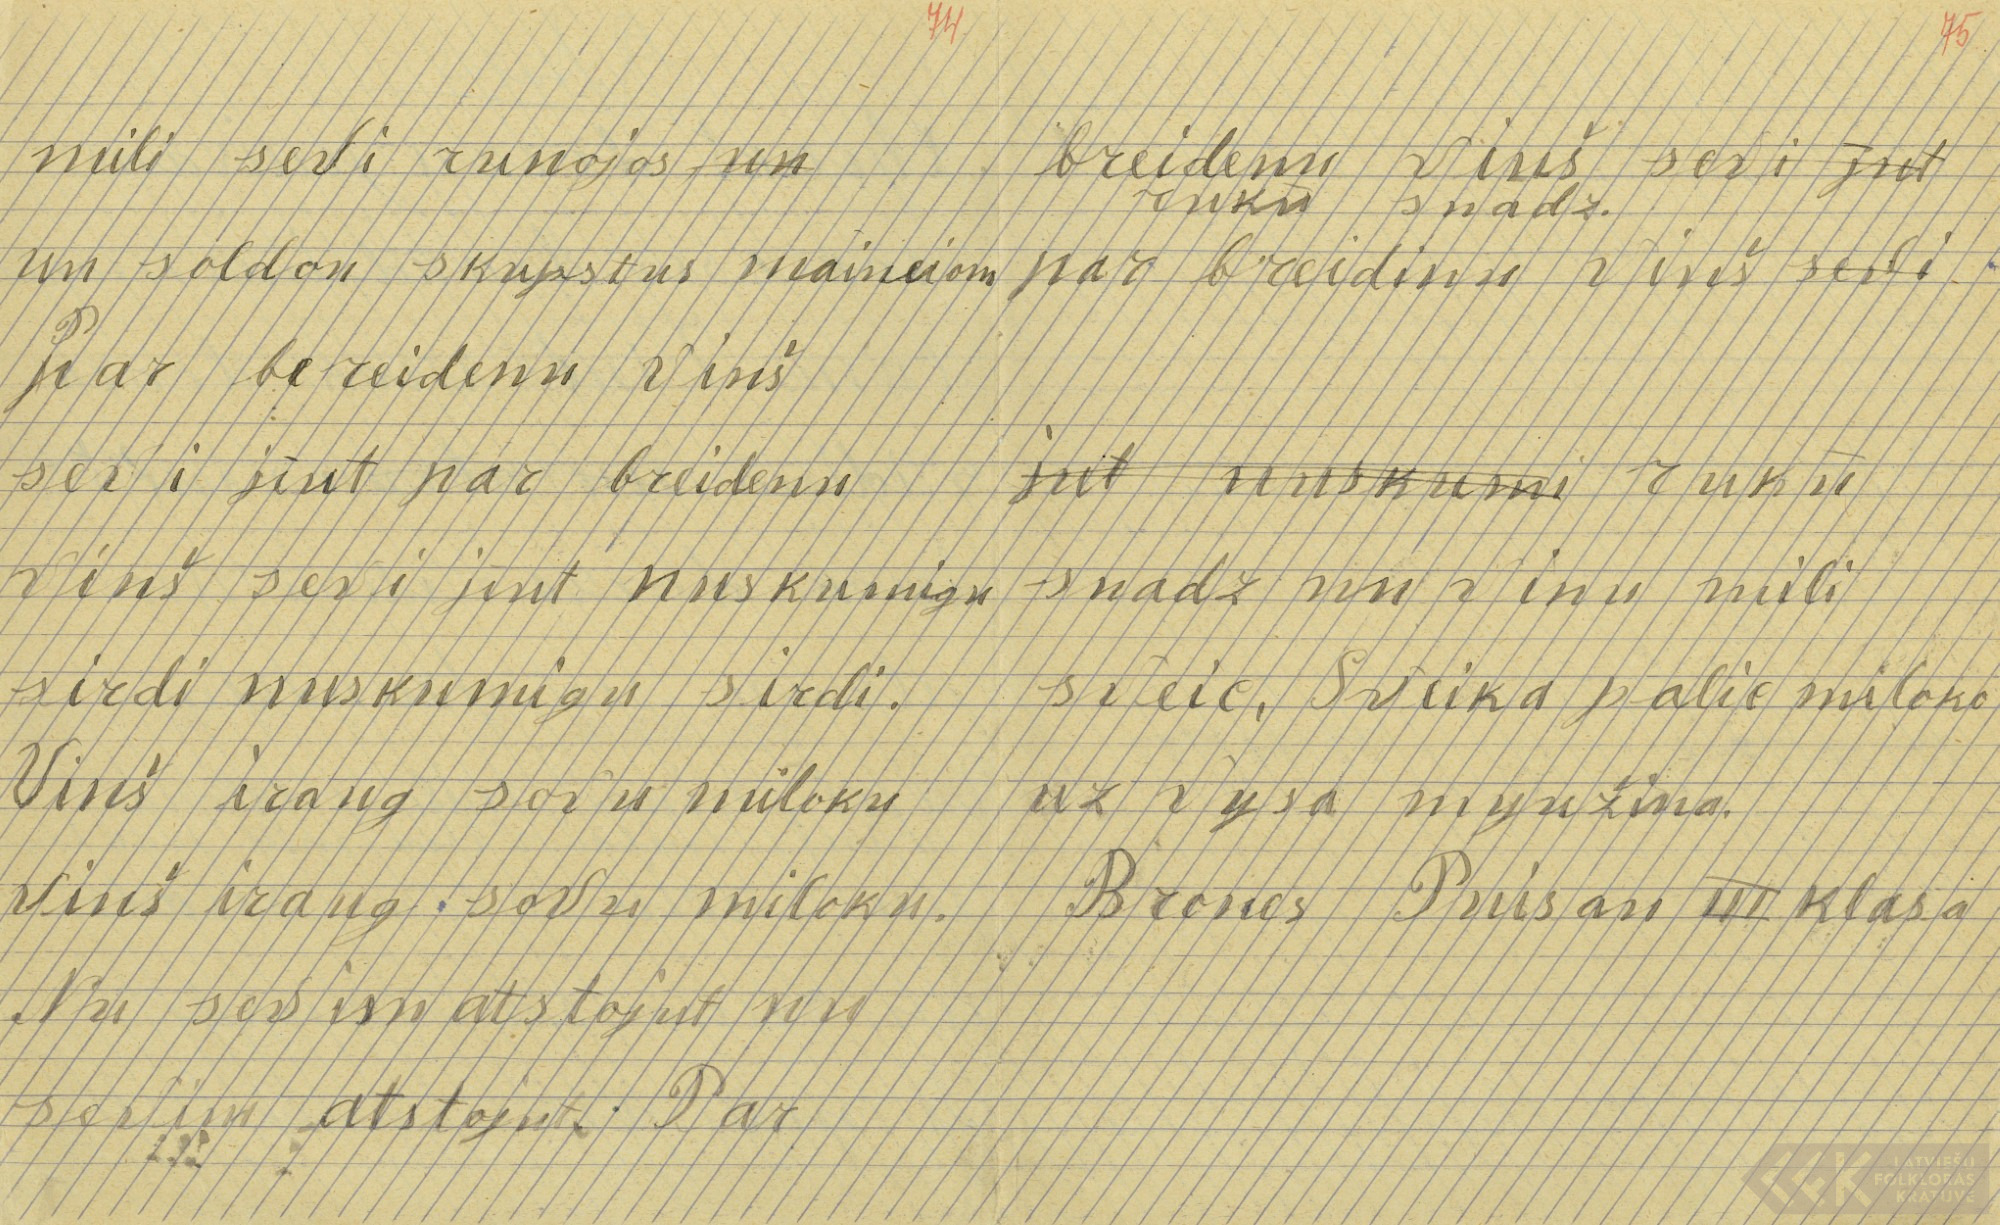 74
mili sevi runojos un
un soldon skupstus maineiom
Par bereidenu viņš
sevi jiut par breidenu
viņš sevi jiut nuskumigu
sirdi nuskumigu sirdi.
Viņš iraug sovu miloku
viņš iraug sovu miloku.
Nu sevim atstojut nu
sevim atstojut. Par
75
breidenu Viņš sevi jut
rukū snadz.
par breidinu Viņš sevi
jut nuskumi rukū
snadz un vinu mili
sveic, Sveika palic miloko
uz vysa myužina.
Brones Puisan III klasa
LATVIEŠU
FOLKLORAS
KRĀTUVE